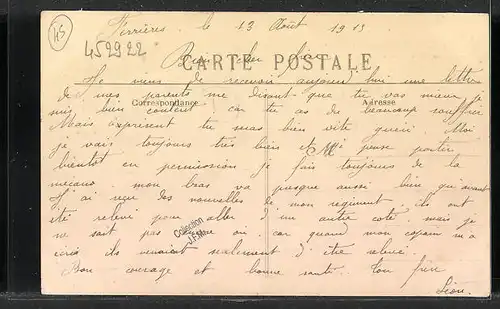 45
452922
Ferrières le 13 Août 1915
Bien cher
CARTE POSTALE
Je viens de recevoir aujourd'hui une lettre
de mes parents me disant que tu vas mieux je
Correspondance Adresse
suis bien content car tu as dû beaucoup souffrir
Mais exprinent tu seras bien vite guéri Moi
je vais toujours très bien et pense partir
bientôt en permission je fais toujours de la
mecano. mon bras va presque aussi bien qu'avant
J'ai reçu des nouvelles de mon regiment ils ont
été relevé pour aller d'un autre coté mais je
ne sait pas encore où car quand mon copain m'a
écris ils venaient seulement d'être relevé.
Bon courage et bonne santé. Ton frère
Léon.
Collection
J.F.M.